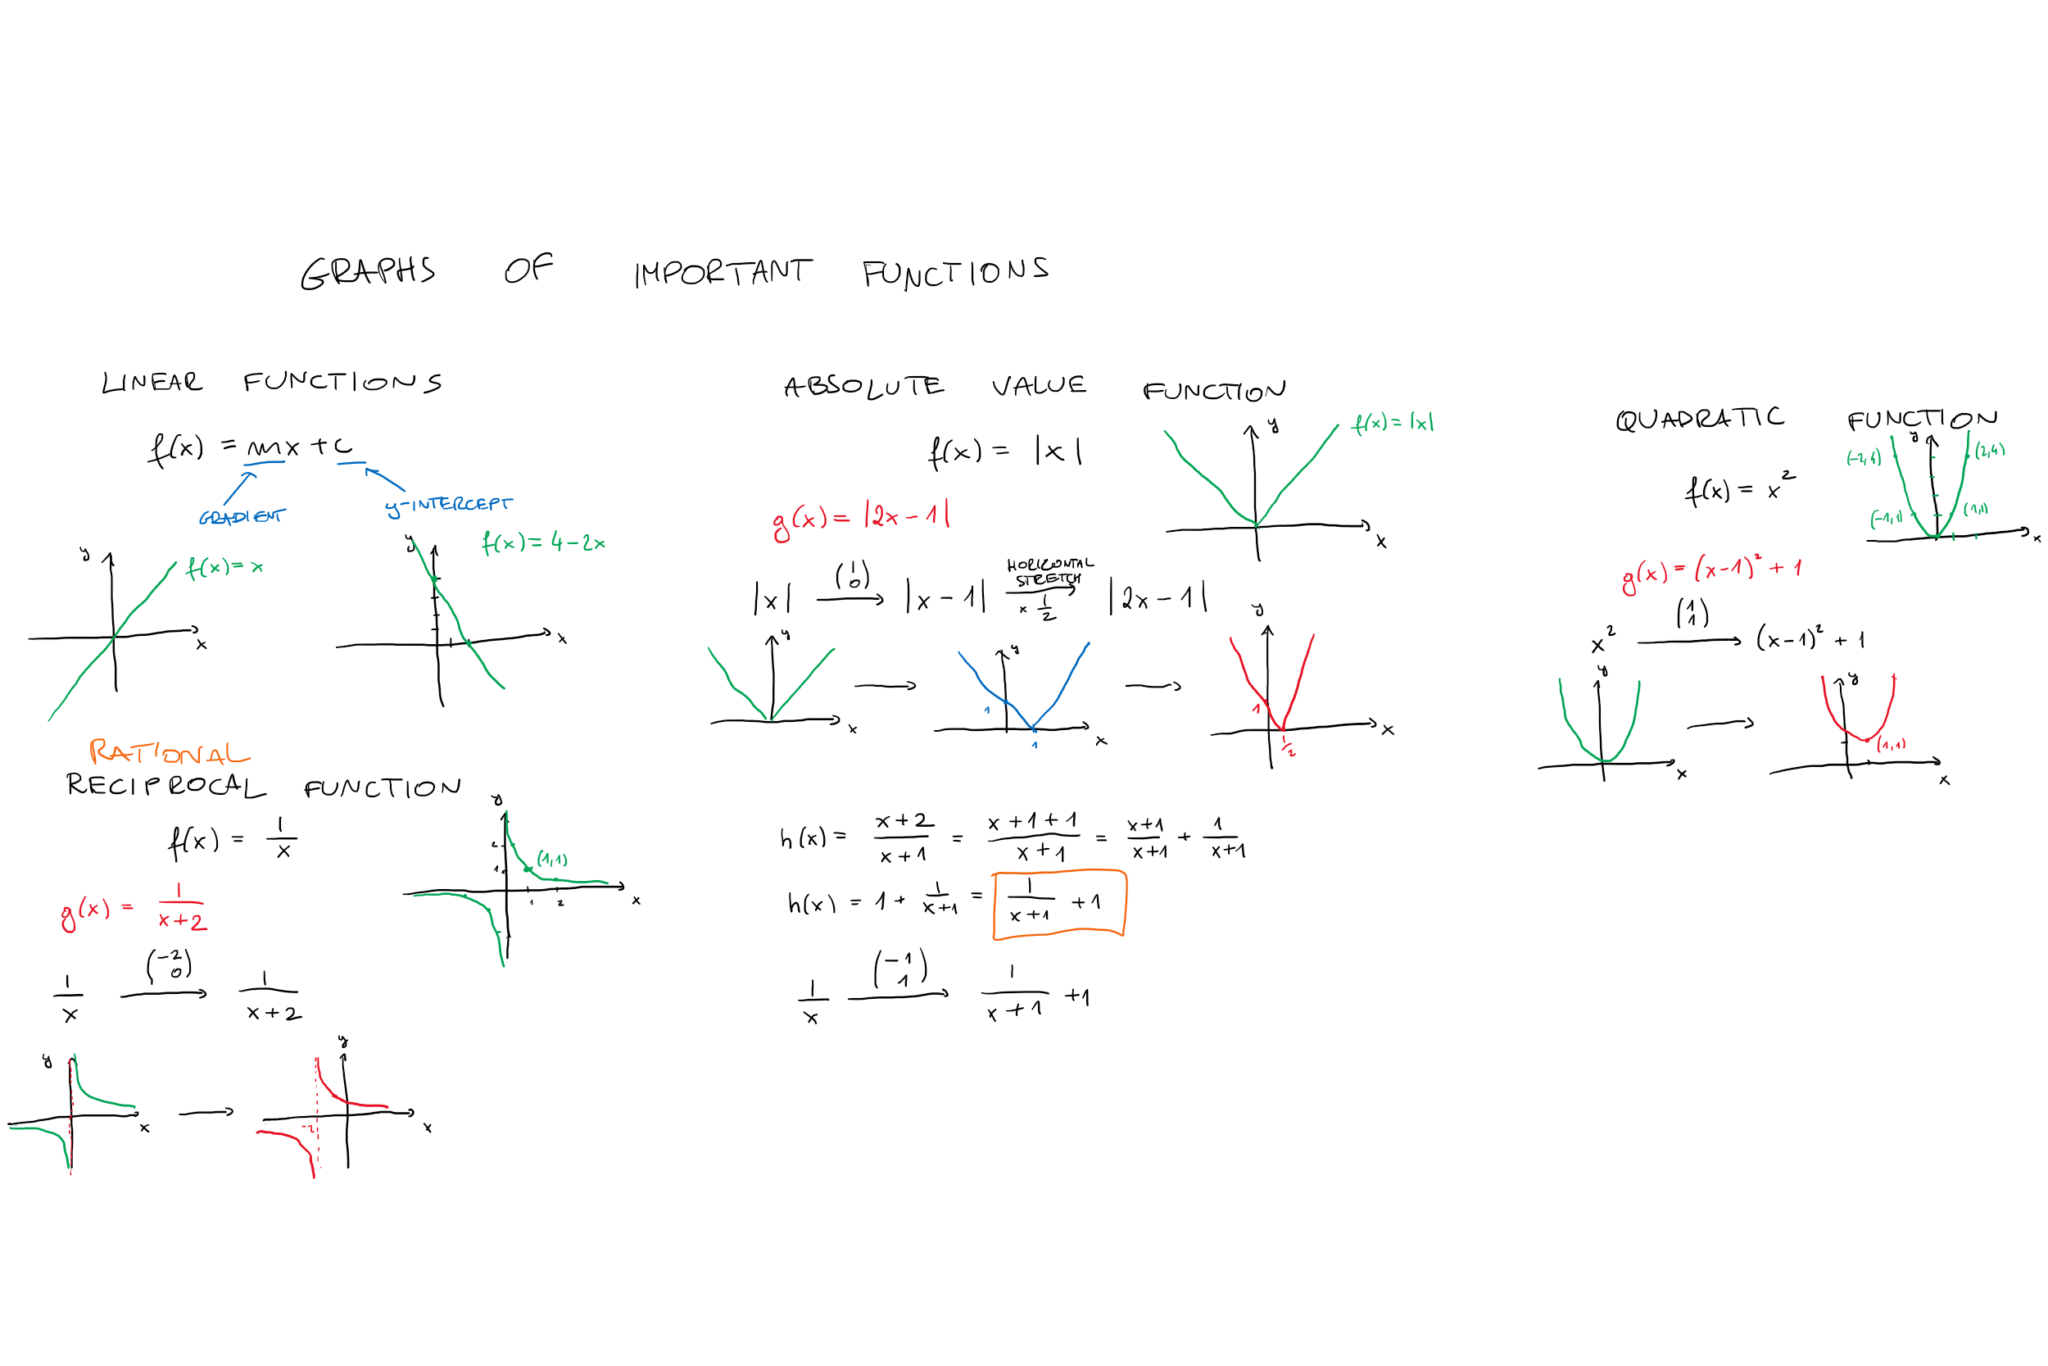 GRAPHS OF IMPORTANT FUNCTIONS
LINEAR FUNCTIONS
f(x) = mx + c
GRADIENT
y-INTERCEPT
y
f(x) = x
x
y
f(x) = 4 - 2x
x
RATIONAL
RECIPROCAL FUNCTION
f(x) = 1/x
y
2
1
(1,1)
1 2
x
g(x) = 1/(x+2)
1/x (-2 0) → 1/(x+2)
y
x
→
y
-2
x
ABSOLUTE VALUE FUNCTION
f(x) = |x|
y
f(x) = |x|
x
g(x) = |2x - 1|
|x| (1 0) → |x - 1| HORIZONTAL STRETCH × 1/2 → |2x - 1|
y
x
→
y
1
1
x
→
y
1
1/2
x
h(x) = (x+2)/(x+1) = (x+1+1)/(x+1) = (x+1)/(x+1) + 1/(x+1)
h(x) = 1 + 1/(x+1) = 1/(x+1) + 1
1/x (-1 1) → 1/(x+1) + 1
QUADRATIC FUNCTION
f(x) = x²
y
(-2,4)
(2,4)
(-1,1)
(1,1)
x
g(x) = (x-1)² + 1
x² (1 1) → (x-1)² + 1
y
x
→
y
(1,1)
x